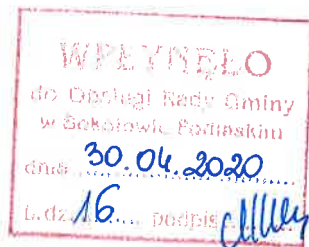 WPŁYNĘŁO
do Obsługi Rady Gminy
w Sokołowie Podlaskim
dnia 30.04.2020
L.dz. 16 podpis